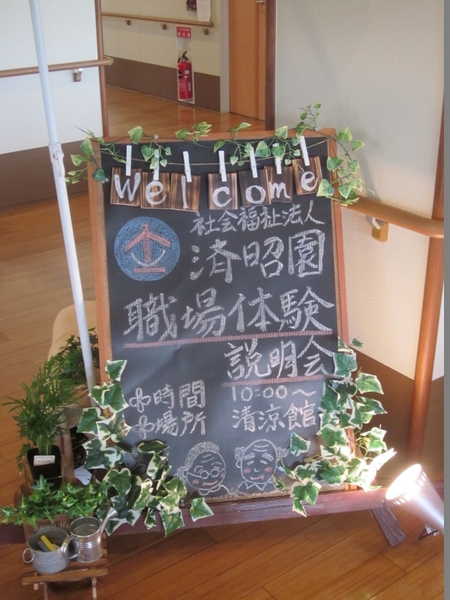 Welcome
社会福祉法人
済昭園
職場体験
説明会
時間 10:00～
場所 清涼館